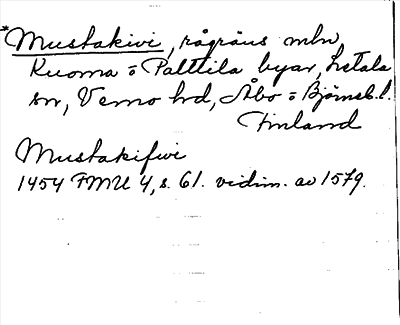 *Mustakivi, rågräns mln
Ruoma o Palttila byar, Letala
sn, Vemo hd, Åbo o Björneb. l.
Finland
Mustakifwi
1454 FMU 4, s. 61. vidim. av 1579.